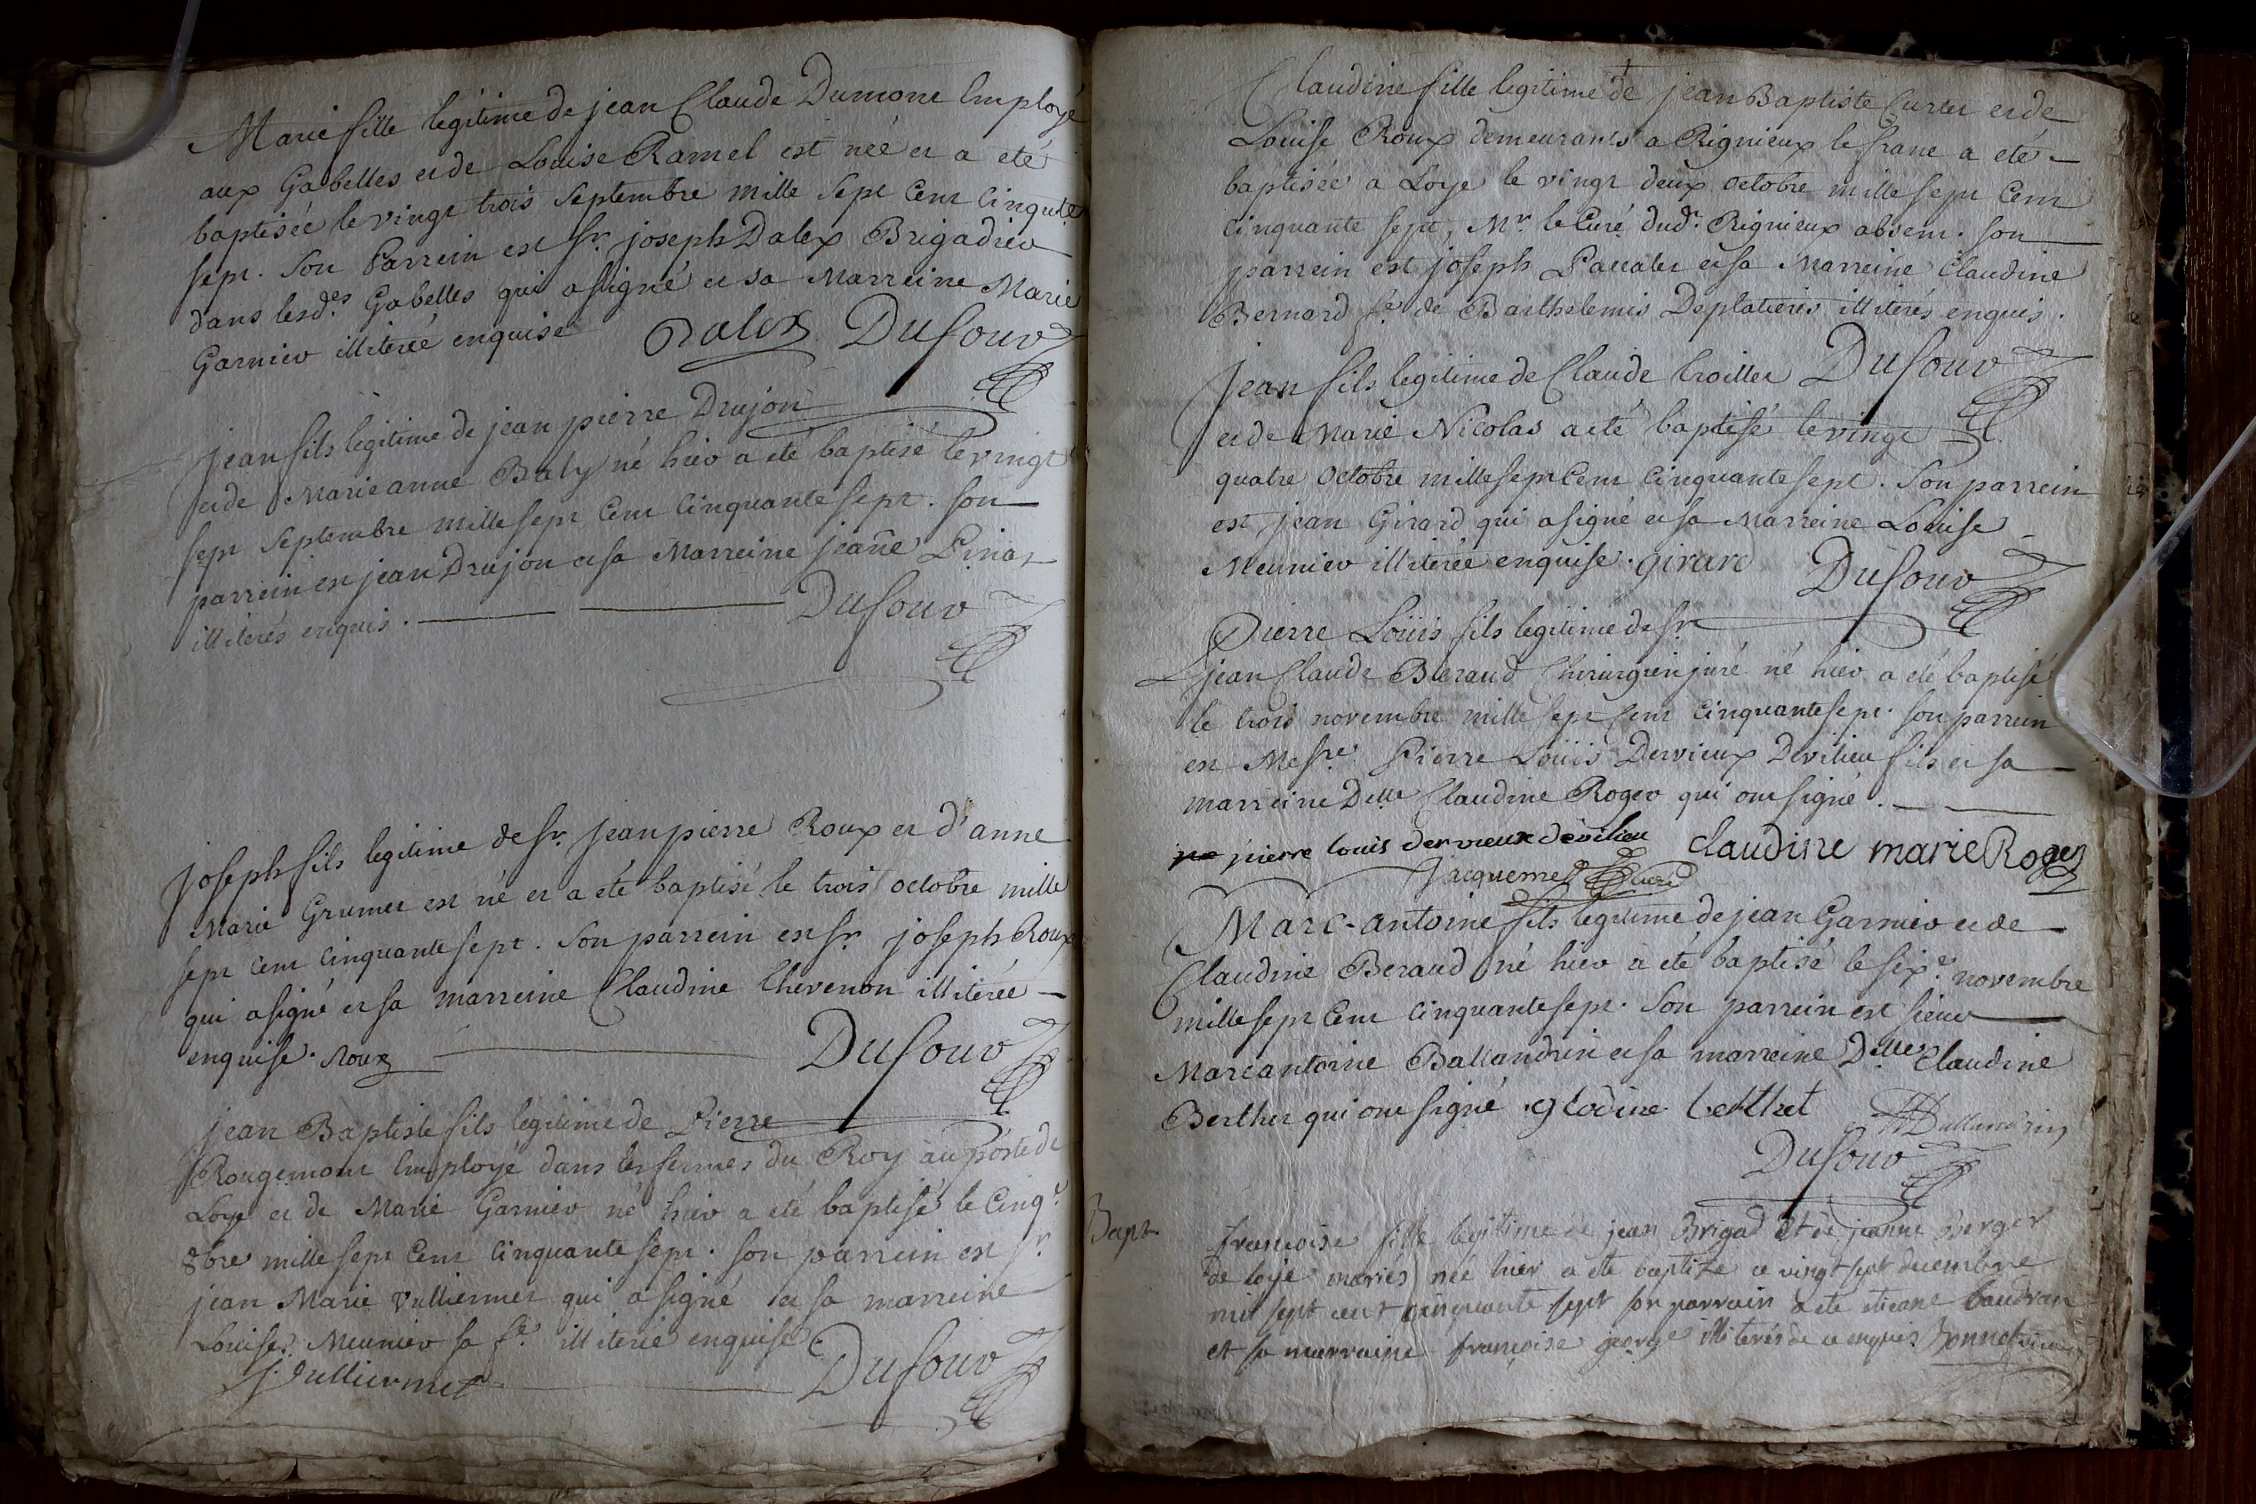 Marie fille legitime de jean Claude Dumont Employé
aux Gabelles et de Louise Ramel est née et a eté
baptisée le vingt trois Septembre mille sept Cent Cinqute
sept. Son Parrein est Sr. joseph Dalex Brigadier
dans lesd.es Gabelles qui a signé et sa Marreine Marie
Garnier illiterée enquise Dalex Dufour
jean fils legitime de jean pierre Drujon
et de Marieanne Baly né hier a eté baptisé le vingt
sept Septembre mille sept Cent Cinquante sept. Son
parrein est jean Drujon et sa Marreine jeañe
illiterés enquis. Dufour
joseph fils legitime de Sr. jean pierre Roux et d'anne
Marie Grumet est né et a eté baptisé le trois octobre mille
sept cent Cinquante sept. Son parrein est Sr. joseph Roux
qui a signé et sa marreine Claudine Thevenon illiterée
enquise. Roux Dufour
jean Baptiste fils legitime de Pierre
Rougemont Employé dans les fermes du Roy au poste de
Loye et de Marie Garnier né hier a eté baptisé le Cinq.e
8bre mille sept Cent Cinquante sept. Son parrein est Sr
jean Marie Vulliermet qui a signé et sa marreine
Louise Meunier sa fe. illiterée enquise
J. Vulliermet Dufour
Claudine fille legitime de jean Baptiste Curtet et de
Louise Roux demeurants a Rignieux le franc a eté
baptisée a Loye le vingt deux octobre mille sept Cent
Cinquante sept, Mr. le Curé dud.t Rignieux absent. Son
parrein est joseph et sa Marreine Claudine
Bernard fe. de Barthelemis Deplatieres illiterés enquis.
jean fils legitime de Claude Troillet Dufour
et de Marie Nicolas a eté baptisé le vingt
quatre octobre mille sept Cent Cinquante sept. Son parrein
est jean Girard qui a signé et sa Marreine Louise
Meunier illiterée enquise. girard Dufour
Pierre Loüis fils legitime de Sr.
jean Claude Beraud Chirurgien juré né hier a eté baptisé
le trois novembre mille sept Cent Cinquante sept. son parrein
est Messre. Pierre Loüis Dervieux Devilieu fils et sa
marreine Delle Claudine Roger qui ont signé.
pierre louis dervieux devilieu Claudine marie Roger
Jacquemet curé
Marc-antoine fils legitime de jean Garnier et de
Claudine Beraud né hier a eté baptisé le six.e novembre
mille sept Cent Cinquante sept. Son parrein est sieur
Marcantoine Ballandrin et sa marreine Delles Claudine
Berthet qui ont signé. glodine berthet Ballandrin
Dufour
Bapt
francoise fille legitime de jean Brigad et de jeanne Berger
de loye maries née hier a ete baptize ce vingt sept decembre
mil sept cent cinquante sept son parrain a ete etienne baudran
et sa marraine françoise george illiterés de ce enquis Bonnet vicaire